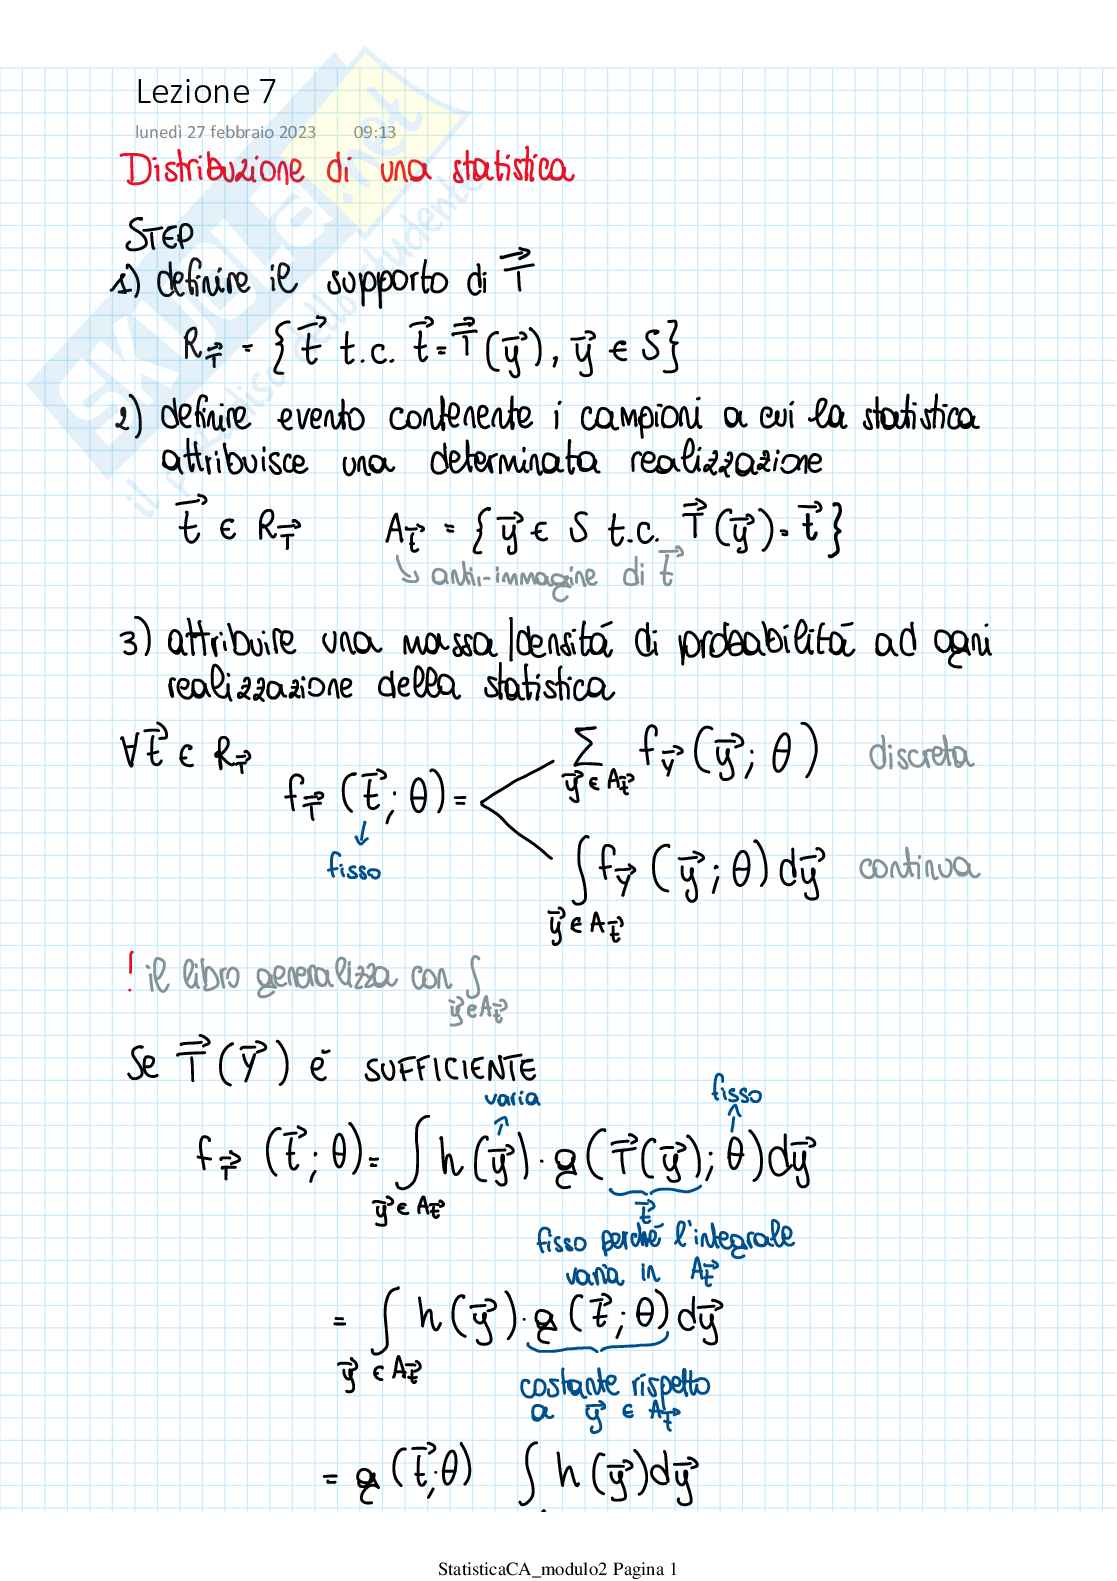 Lezione 7
lunedì 27 febbraio 2023 09:13
Distribuzione di una statistica
STEP
1) definire il supporto di T⃗
R_T⃗ = { t⃗ t.c. t⃗ = T⃗(y⃗), y⃗ ∈ S}
2) definire evento contenente i campioni a cui la statistica
attribuisce una determinata realizzazione
t⃗ ∈ R_T⃗ A_t⃗ = { y⃗ ∈ S t.c. T⃗(y⃗) = t⃗ }
↳ anti-immagine di t⃗
3) attribuire una massa/densitá di probabilitá ad ogni
realizzazione della statistica
∀t⃗ ∈ R_T⃗
f_T⃗ (t⃗; θ) =
fisso
∑_{y⃗ ∈ A_t⃗} f_Y⃗ (y⃗; θ) discreta
∫_{y⃗ ∈ A_t⃗} f_Y⃗ (y⃗; θ) dy⃗ continua
! il libro generalizza con ∫_{y⃗ ∈ A_t⃗}
Se T⃗(Y⃗) é SUFFICIENTE
varia fisso
f_T⃗ (t⃗; θ) = ∫_{y⃗ ∈ A_t⃗} h(y⃗) · g(T⃗(y⃗); θ) dy⃗
t⃗
fisso perché l'integrale
varia in A_t⃗
= ∫_{y⃗ ∈ A_t⃗} h(y⃗) · g(t⃗; θ) dy⃗
costante rispetto
a y⃗ ∈ A_t⃗
= g(t⃗; θ) ∫ h(y⃗) dy⃗
StatisticaCA_modulo2 Pagina 1
SKUOLA.net